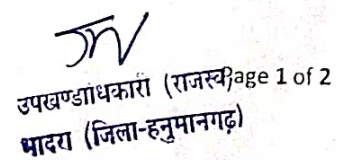 उपखण्डाधिकारी (राजस्व)Page 1 of 2
भादरा (जिला-हनुमानगढ़)